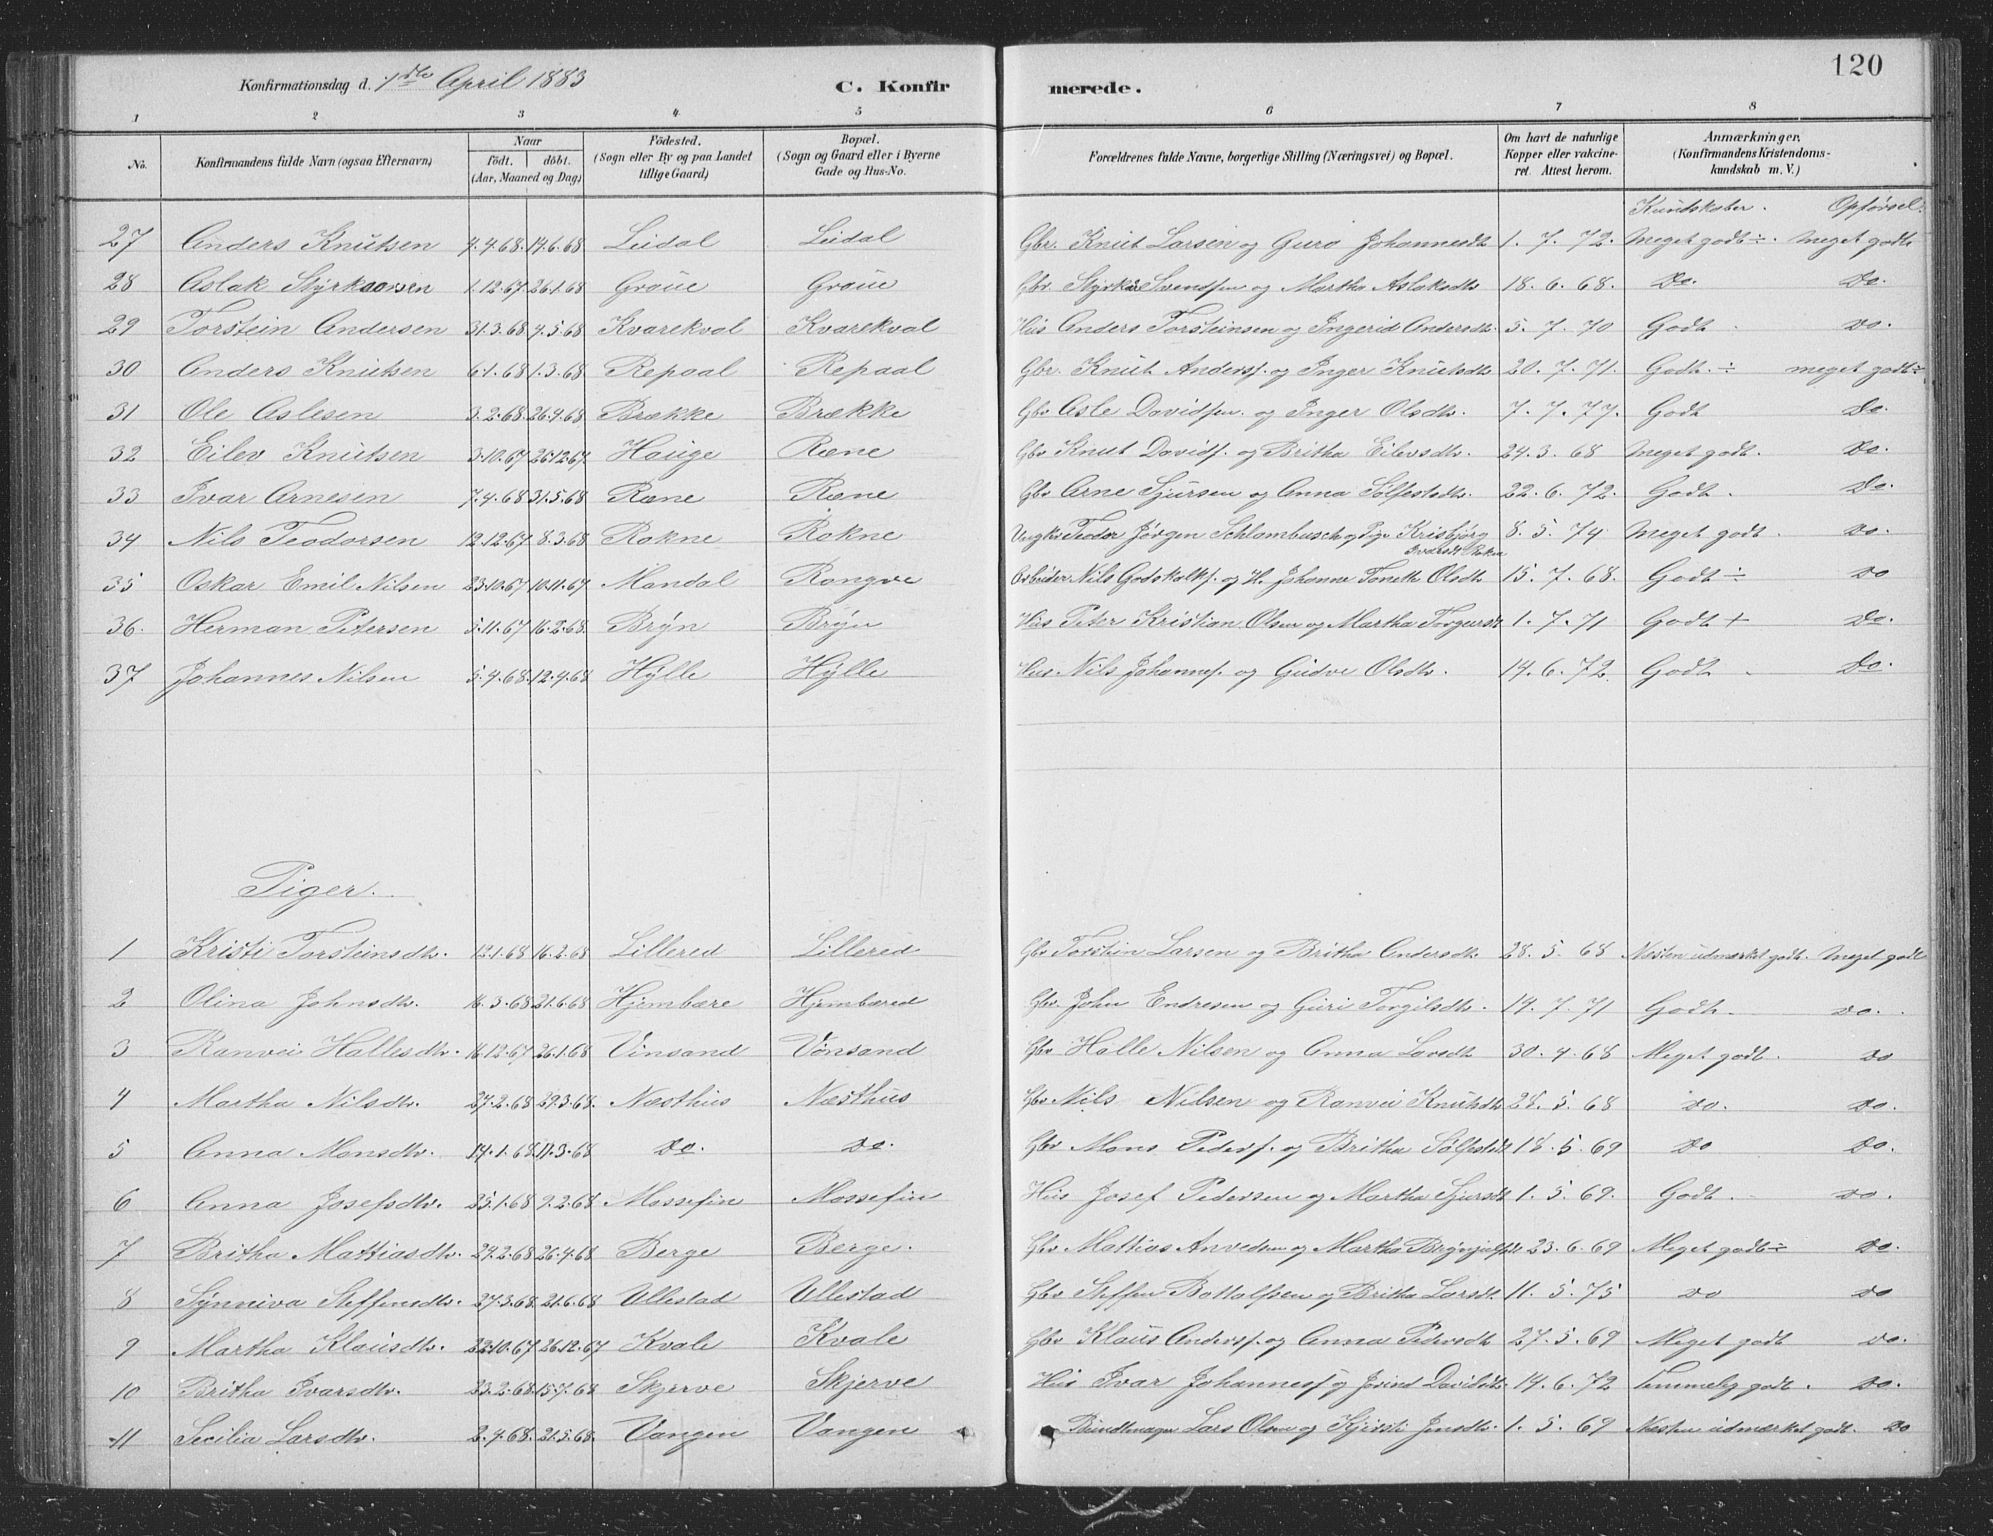 120
Konfirmationsdag d. 1ste April 1883 C. Konfir merede.
1 2 3 4 5 6 7 8
No. Konfirmandens fulde Navn (ogsaa Efternavn) Naar födt. döbt. (Aar, Maaned og Dag) Födested. (Sogn eller By og paa Landet tillige Gaard) Bopæl. (Sogn og Gaard eller i Byerne Gade og Hus-No. Forældrenes fulde Navne, borgerlige Stilling (Næringsvei) og Bopæl. Om havt de naturlige Kopper eller vakcineret. Attest herom. Anmærkninger, (Konfirmandens Kristendomskundskab m. V.)
Kundskaber. Opførsel.
27 Anders Knutsen 4.4.68. 14.6.68 Leidal Leidal Gbr. Knut Larsen og Guro Johannesdt 1.7.72. Meget godt ÷. Meget godt
28 Aslak Styrkaarsen 1.12.67 26.1.68 Groue Groue Gbr. Styrk Svendsen og Martha Aslaksdtr 18.6.68. Do. Do.
29 Torstein Andersen 31.3.68 4.5.68 Kvarekval Kvarekval Hus Anders Torsteinsen og Ingerid Andersdtr. 5.7.70 Godt. Do.
30 Anders Knutsen 6.1.68 1.3.68 Repaal Repaal Gbr. Knut Andersf. og Inger Knutsdtr 20.7.71. Godt. ÷ meget godt ÷
31 Ole Aslesen 3.2.68 26.4.68 Brække Brække Gbr Asle Davidsen. og Inger Olsdtr. 7.7.77. Godt Do.
32 Eilev Knutsen 3.10.67 26.12.67 Hauge Ræne Gbr Knut Davidf. og Britha Eilevsdtr. 24.3.68 Meget godt. Do.
33 Ivar Arnesen 7.4.68 31.5.68 Ræne Ræne Gbr Arne Sjursen og Anna Sølfestdtr. 22.6.72. Godt. Do.
34 Nils Teodorsen 12.12.67 8.3.68 Rokne Rokne Ungkr Teodor Jørgen Schlambusch og Pige Krisbjørg 8.5.74 Meget godt. Do.
Ivarsdt Rokne
35 Oskar Emil Nilsen 23.10.67 10.11.67 Mandal Rongve Arbeider Nils Godskalkf. og H. Johanne Tonette Olsdt 15.7.68. Godt ÷ Do
36. Herman Petersen 5.11.67 16.2.68. Brÿn Brÿn Hus Peter Kristian Olsen og Martha Torgersdt 1.7.71 Godt + Do.
37 Johannes Nilsen 5.4.68. 12.4.68 Hÿlle Hÿlle Hus Nils Johannesf. og Gudve Olsdtr. 14.6.72. Godt. Do
Piger.
1 Kristi Torsteinsdtr. 12.1.68 16.2.68 Lillered Lillered Gbr Torstein Larsen og Britha Andersdtr. 28.5.68 Næsten udmærket godt. Meget godt
2 Olina Johnsdtr. 16.3.68 21.6.68 Hjembære Hjembæred Gbr John Endresen og Guri Torgilsdtr. 14.7.71 Godt. Do.
3 Ranvei Hallesdtr. 16.12.67 26.1.68 Vinsand Vinsand Gbr Halle Nilsen og Anna Larsdt 30.4.68 Meget godt. Do
4 Martha Nilsdtr. 27.2.68 29.3.68. Næsthus Næsthus Gbr Nils Nilsen og Ranvei Knutsdtr 28.5.68 Do. Do.
5 Anna Monsdtr. 14.1.68 17.3.68 Do. Do. Gbr Mons Pedersf. og Britha Sølfestdt 18.5.69 Do Do.
6 Anna Josefsdtr. 25.1.68 9.2.68 Mossefin Mossefin Hus Josef Pedersen og Martha Sjursdt 1.5.69. Godt. Do.
7 Britha Mattiasdtr. 24.2.68 26.4.68 Berge Berge. Gbr Mattias Anvedsen og Martha Brÿnjulfdt 23.6.69 Meget godt ÷ Do.
8 Sÿnniva Steffensdtr. 27.3.68 21.6.68 Ullestad Ullestad Gbr Steffen Bottolfsen og Britha Larsdt. 11.5.75 Do Do
9 Martha Klausdtr. 22.10.67 26.12.67 Kvale Kvale Gbr Klaus Andersf. og Anna Pedersdt 27.5.69 Meget godt Do.
10 Britha Ivarsdtr. 23.2.68 15.7.68 Skjerve Skjerve Hus Ivar Johannesf og Jorind Davidsdtr. 14.6.72 Temmelig godt. Do.
11 Secilia Larsdtr. 2.4.68. 21.5.68. Vangen Vangen Bundtmager Lars Olsen og Kjersti Jensdtr. 1.5.69 Næsten udmærket godt. Do